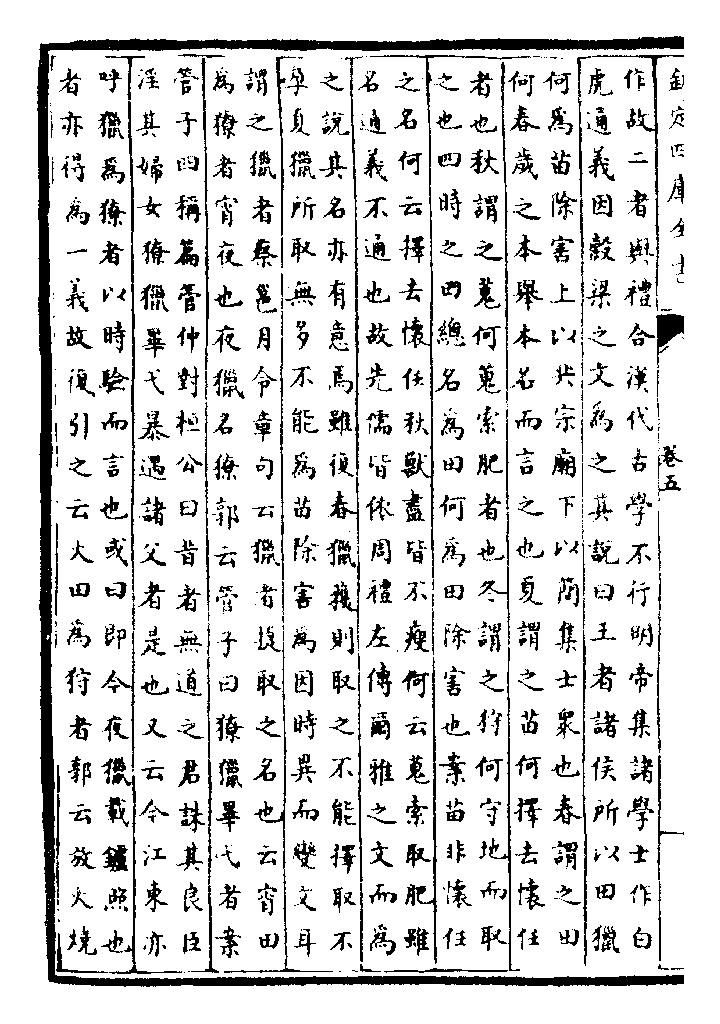 欽定四庫全書
卷五
作故二者與禮合漢代古學不行明帝集諸學士作白
虎通義因穀梁之文為之其說曰王者諸侯所以田獵
何為苗除害上以共宗廟下以簡集士眾也春謂之田
何春歲之本舉本名而言之也夏謂之苗何擇去懷任
者也秋謂之蒐何蒐索肥者也冬謂之狩何守地而取
之也四時之田總名為田何為田除害也案苗非懷任
之名何云擇去懷任秋獸盡皆不瘦何云蒐索取肥雖
名通義不通也故先儒皆依周禮左傳爾雅之文而為
之說其名亦有意焉雖復春獵獲則取之不能擇取不
孕夏獵所取無多不能為苗除害為因時異而變文耳
謂之獵者蔡邕月令章句云獵者捷取之名也云宵田
為獠者宵夜也夜獵名獠郭云管子曰獠獵畢弋者案
管子四稱篇管仲對桓公曰昔者無道之君誅其良臣
淫其婦女獠獵畢弋暴遇諸父者是也又云今江東亦
呼獵為獠者以時驗而言也或曰即今夜獵載鑪照也
者亦得為一義故復引之云火田為狩者郭云放火燒